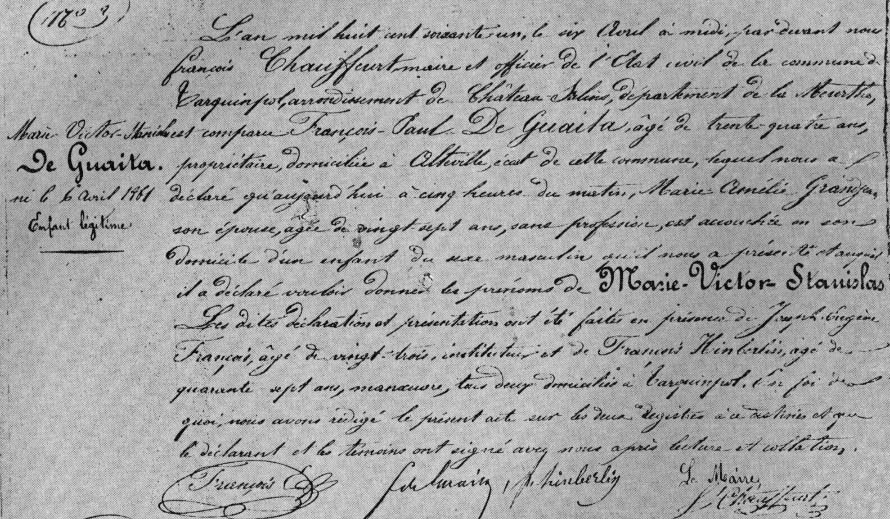 N° 3
L'an mil huit cent soixante un, le six Avril à midi, par devant nous
françois Chauffeurt, maire et officier de l'Etat civil de la commune de
Tarquinpol, arrondissement de Château-Salins, département de la Meurthe,
Marie Victor Stanislas
De Guaita.
né le 6 Avril 1861
Enfant légitime
est comparu François-Paul De Guaita, âgé de trente-quatre ans,
propriétaire, domicilié à Alteville, écart de cette commune, lequel nous a
déclaré qu'aujourd'hui à cinq heures du matin, Marie Amélie Grandjean
son épouse, agée de vingt sept ans, sans profession, est accouchée en son
domicile d'un enfant du sexe masculin qu'il nous a présenté et auquel
il a déclaré vouloir donner les prénoms de Marie-Victor-Stanislas
Les dites déclaration et présentation ont été faites en présence de Joseph Eugène
François, âgé de vingt-trois, instituteur et de François Hinberlin, agé de
quarante sept ans, manœuvre, tous deux domiciliés à Tarquinpol. En foi de
quoi, nous avons rédigé le présent acte sur les deux registres à ce destinés et que
le déclarant et les témoins ont signé avec nous après lecture et collation.
François f. de Guaita f. hinberlin Le Maire,
f. Chauffeurt